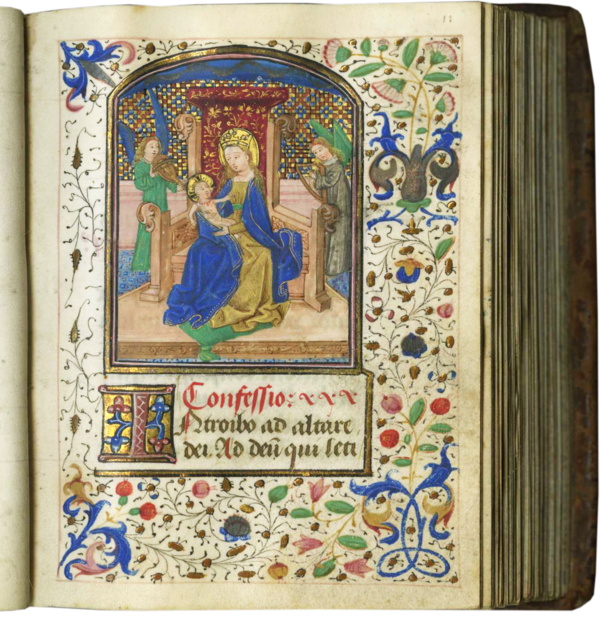 Confessio:
INtroibo ad altare
dei. Ad deū qui leti